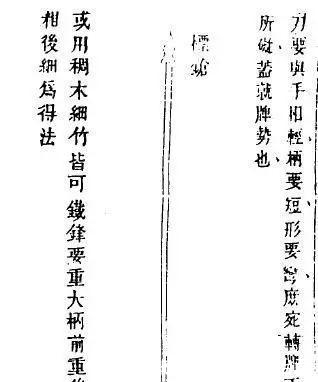 刀要與手相輕柄要短形要彎庶宛轉牌下
所礙蓋就牌勢也
標鎗
或用稠木細竹皆可鐵鋒要重大柄前重後
相後細為得法